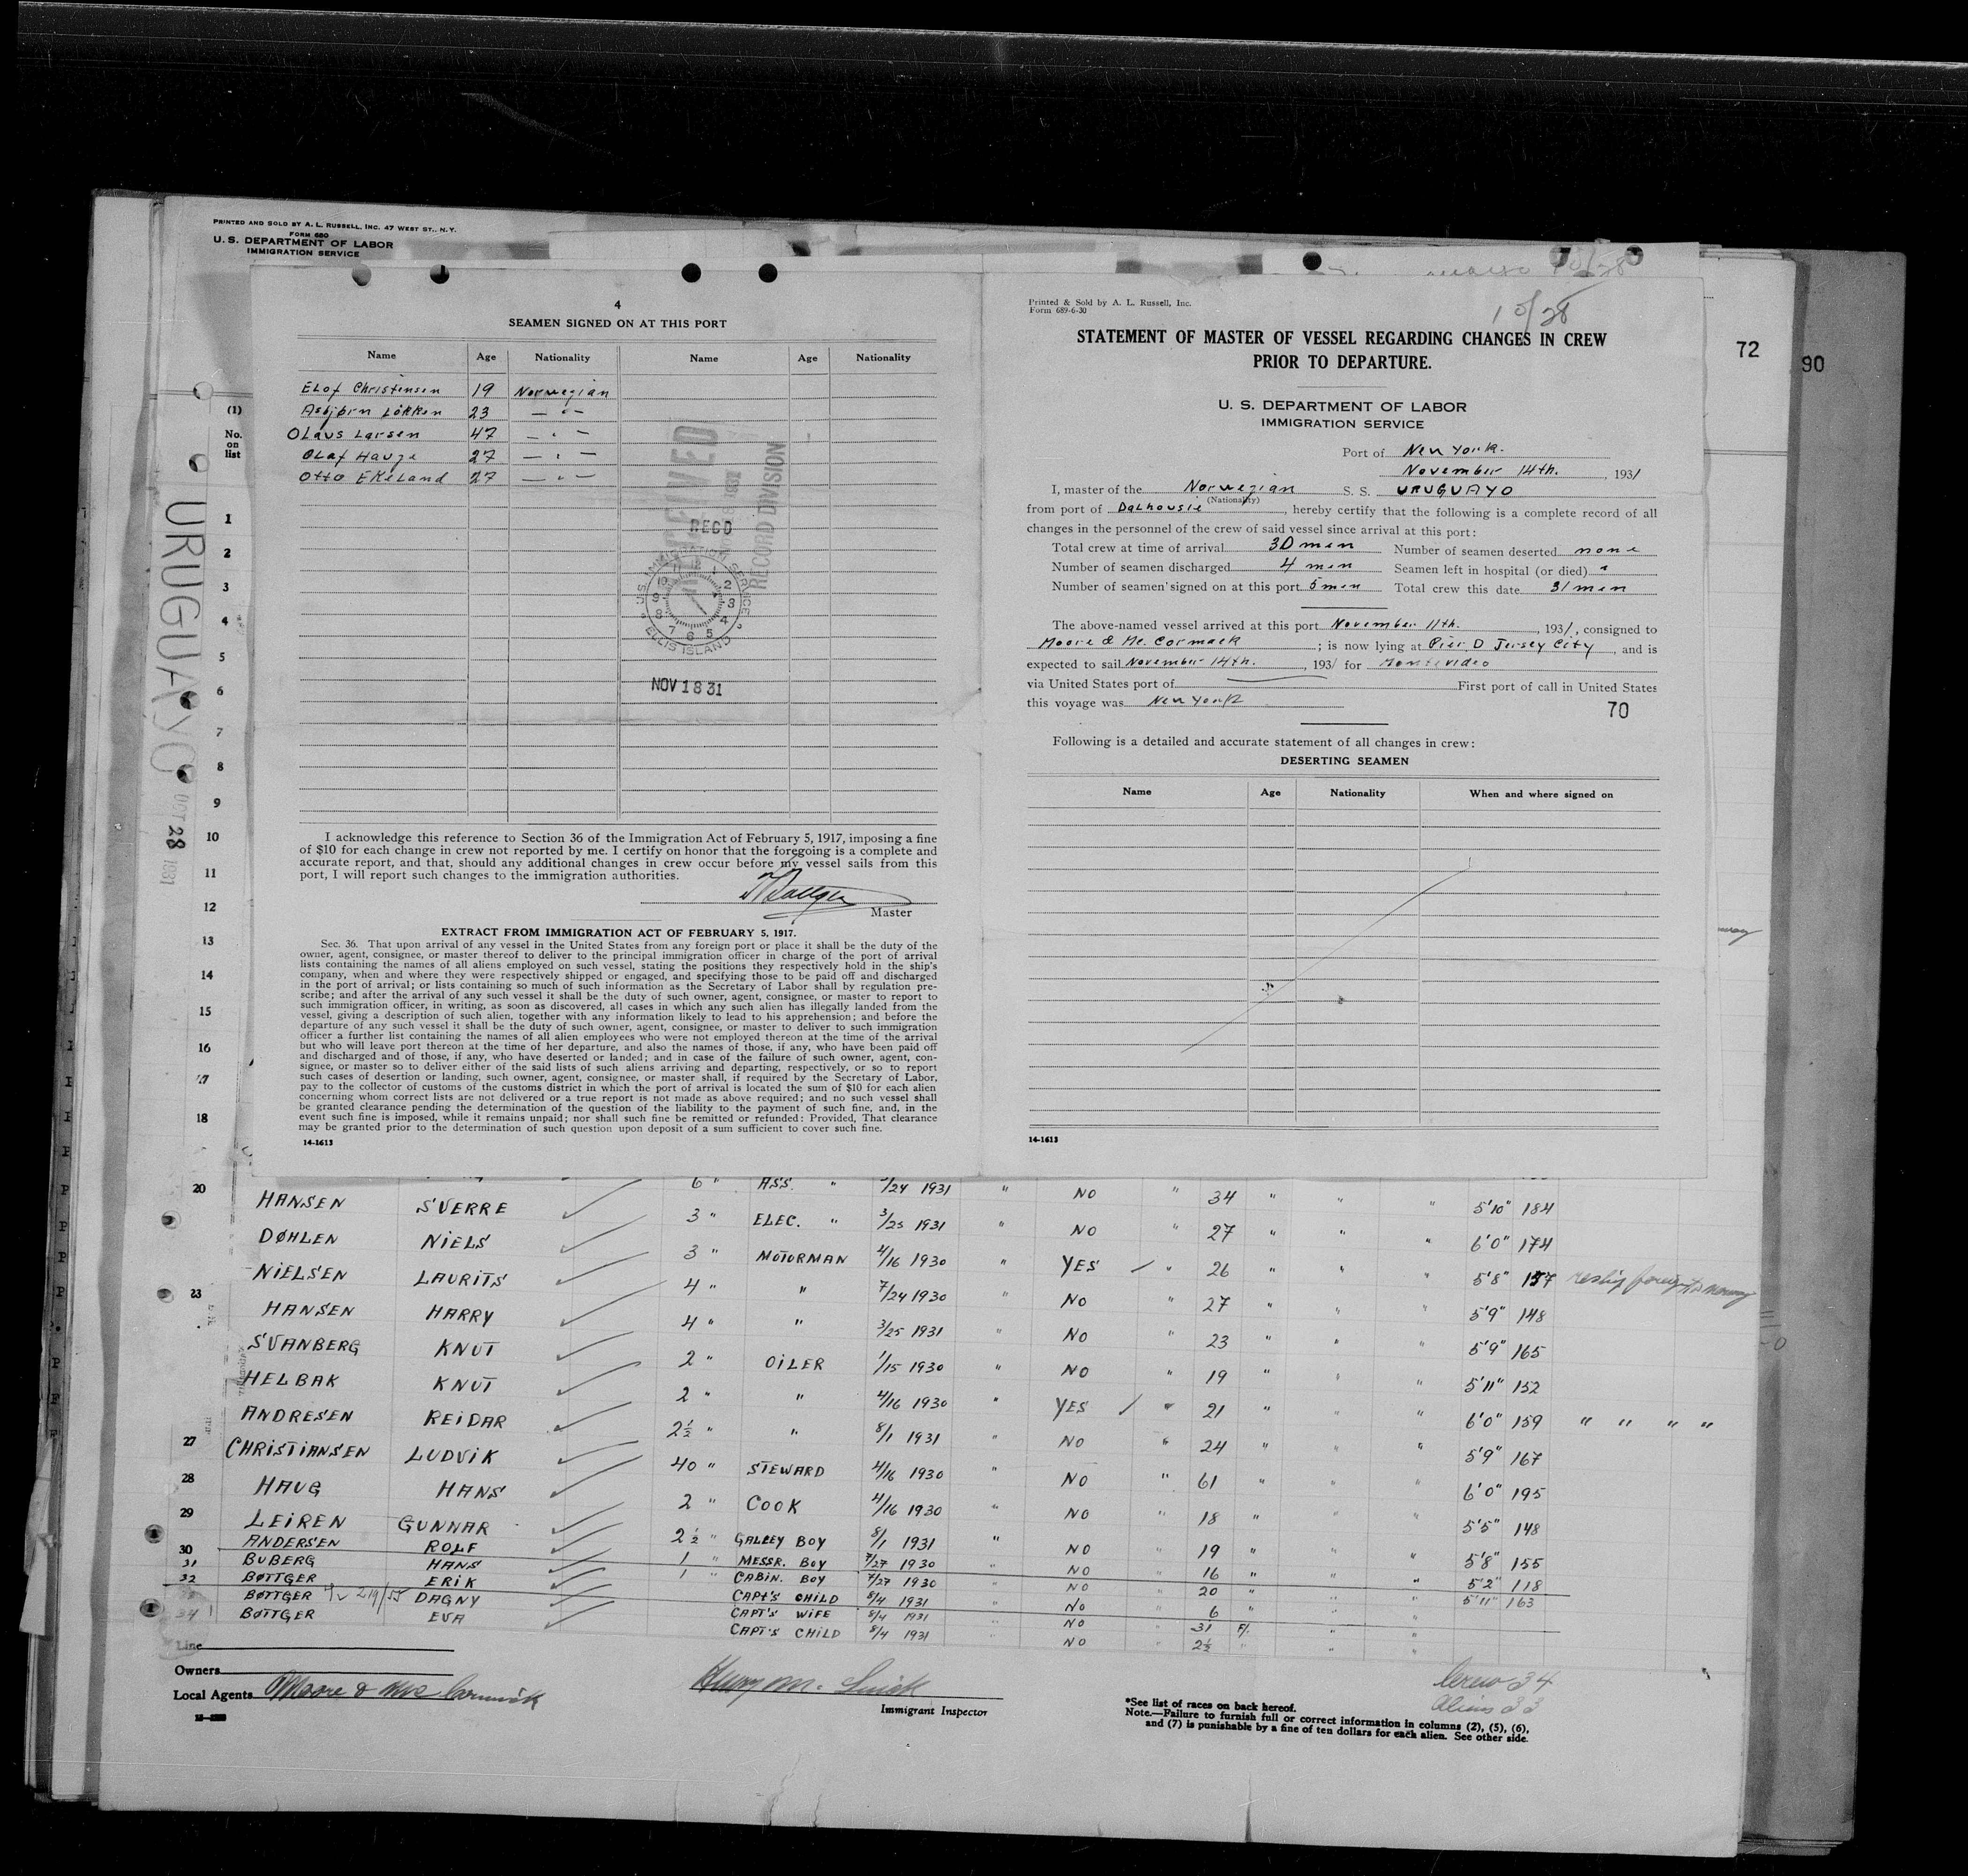 PRINTED AND SOLD BY A. L. RUSSELL, INC. 47 WEST ST., N. Y.
FORM 680
U. S. DEPARTMENT OF LABOR
IMMIGRATION SERVICE
(1)
No.
on
list
URUGUAYO
OCT 28 1931
1
2
3
4
5
6
7
8
9
10
11
12
13
14
15
16
17
18
4
SEAMEN SIGNED ON AT THIS PORT
Name Age Nationality Name Age Nationality
Elof Christensen 19 Norwegian
Asbjørn Lökken 23 — " —
Olaus Larsen 47 — " —
Olaf Hauge 27 — " —
Otto Ekeland 27 — " —
RECEIVED
RECORD DIVISION
RECD
U.S. IMMIGRATION SERVICE
ELLIS ISLAND
NOV 18 31
I acknowledge this reference to Section 36 of the Immigration Act of February 5, 1917, imposing a fine
of $10 for each change in crew not reported by me. I certify on honor that the foregoing is a complete and
accurate report, and that, should any additional changes in crew occur before my vessel sails from this
port, I will report such changes to the immigration authorities.
Master
EXTRACT FROM IMMIGRATION ACT OF FEBRUARY 5, 1917.
Sec. 36. That upon arrival of any vessel in the United States from any foreign port or place it shall be the duty of the
owner, agent, consignee, or master thereof to deliver to the principal immigration officer in charge of the port of arrival
lists containing the names of all aliens employed on such vessel, stating the positions they respectively hold in the ship's
company, when and where they were respectively shipped or engaged, and specifying those to be paid off and discharged
in the port of arrival; or lists containing so much of such information as the Secretary of Labor shall by regulation pre-
scribe; and after the arrival of any such vessel it shall be the duty of such owner, agent, consignee, or master to report to
such immigration officer, in writing, as soon as discovered, all cases in which any such alien has illegally landed from the
vessel, giving a description of such alien, together with any information likely to lead to his apprehension; and before the
departure of any such vessel it shall be the duty of such owner, agent, consignee, or master to deliver to such immigration
officer a further list containing the names of all alien employees who were not employed thereon at the time of the arrival
but who will leave port thereon at the time of her departure, and also the names of those, if any, who have been paid off
and discharged and of those, if any, who have deserted or landed; and in case of the failure of such owner, agent, con-
signee, or master so to deliver either of the said lists of such aliens arriving and departing, respectively, or so to report
such cases of desertion or landing, such owner, agent, consignee, or master shall, if required by the Secretary of Labor,
pay to the collector of customs of the customs district in which the port of arrival is located the sum of $10 for each alien
concerning whom correct lists are not delivered or a true report is not made as above required; and no such vessel shall
be granted clearance pending the determination of the question of the liability to the payment of such fine, and, in the
event such fine is imposed, while it remains unpaid; nor shall such fine be remitted or refunded: Provided, That clearance
may be granted prior to the determination of such question upon deposit of a sum sufficient to cover such fine.
14-1613
Printed & Sold by A. L. Russell, Inc.
Form 689-6-30
10/28
STATEMENT OF MASTER OF VESSEL REGARDING CHANGES IN CREW
PRIOR TO DEPARTURE.
72
90
U. S. DEPARTMENT OF LABOR
IMMIGRATION SERVICE
Port of New York.
November 14th. , 1931
I, master of the Norwegian S. S. URUGUAYO
(Nationality)
from port of Dalhousie , hereby certify that the following is a complete record of all
changes in the personnel of the crew of said vessel since arrival at this port:
Total crew at time of arrival 30 men Number of seamen deserted none
Number of seamen discharged 4 men Seamen left in hospital (or died) "
Number of seamen signed on at this port 5 men Total crew this date 31 men
The above-named vessel arrived at this port November 11th. , 1931, consigned to
Moore & Mc. Cormack ; is now lying at Pier D Jersey City , and is
expected to sail November 14th. , 1931 for Montevideo
via United States port of First port of call in United States
this voyage was New York
70
Following is a detailed and accurate statement of all changes in crew:
DESERTING SEAMEN
Name Age Nationality When and where signed on
14-1613
6 " ASS. " /24 1931 " NO " 34 " " "
20 HANSEN SVERRE 3 " ELEC. " 3/25 1931 " NO " 27 " " " 5'10" 184
DØHLEN NIELS 3 " MOTORMAN 4/16 1930 " YES " 26 " " " 6'0" 174
NIELSEN LAURITS 4 " " 7/24 1930 NO " 27 " " " 5'8" 157
23 HANSEN HARRY 4 " " 3/25 1931 " NO " 23 " " " 5'9" 148
SVANBERG KNUT 2 " OILER 1/15 1930 " NO " 19 " " " 5'9" 165
HELBAK KNUT 2 " " 4/16 1930 " YES " 21 " " " 5'11" 152
ANDRESEN REIDAR 2½ " " 8/1 1931 NO " 24 " " " 6'0" 159 " " " "
27 CHRISTIANSEN LUDVIK 40 " STEWARD 4/16 1930 " NO " 61 " " " 5'9" 167
28 HAUG HANS 2 " COOK 4/16 1930 " NO " 18 " " " 6'0" 195
29 LEIREN GUNNAR 2½ " GALLEY BOY 8/1 1931 " NO " 19 " " " 5'5" 148
30 ANDERSEN ROLF 1 " MESSR. BOY 7/27 1930 " NO " 16 " " " 5'8" 155
31 BUBERG HANS 1 " CABIN. BOY 7/27 1930 " NO " 20 " " " 5'2" 118
32 BØTTGER ERIK CAPT'S CHILD 8/4 1931 " NO " 6 " " 5'11" 163
BØTTGER DAGNY CAPT'S WIFE 8/4 1931 " NO " 31 F. " "
34 BØTTGER EVA CAPT'S CHILD 8/4 1931 " NO " 2½ " " "
Line
Owners
Local Agents Moore & McCormick
Henry M.
Immigrant Inspector
Crew 34
Aliens 33
*See list of races on back hereof.
Note.—Failure to furnish full or correct information in columns (2), (5), (6),
and (7) is punishable by a fine of ten dollars for each alien. See other side.